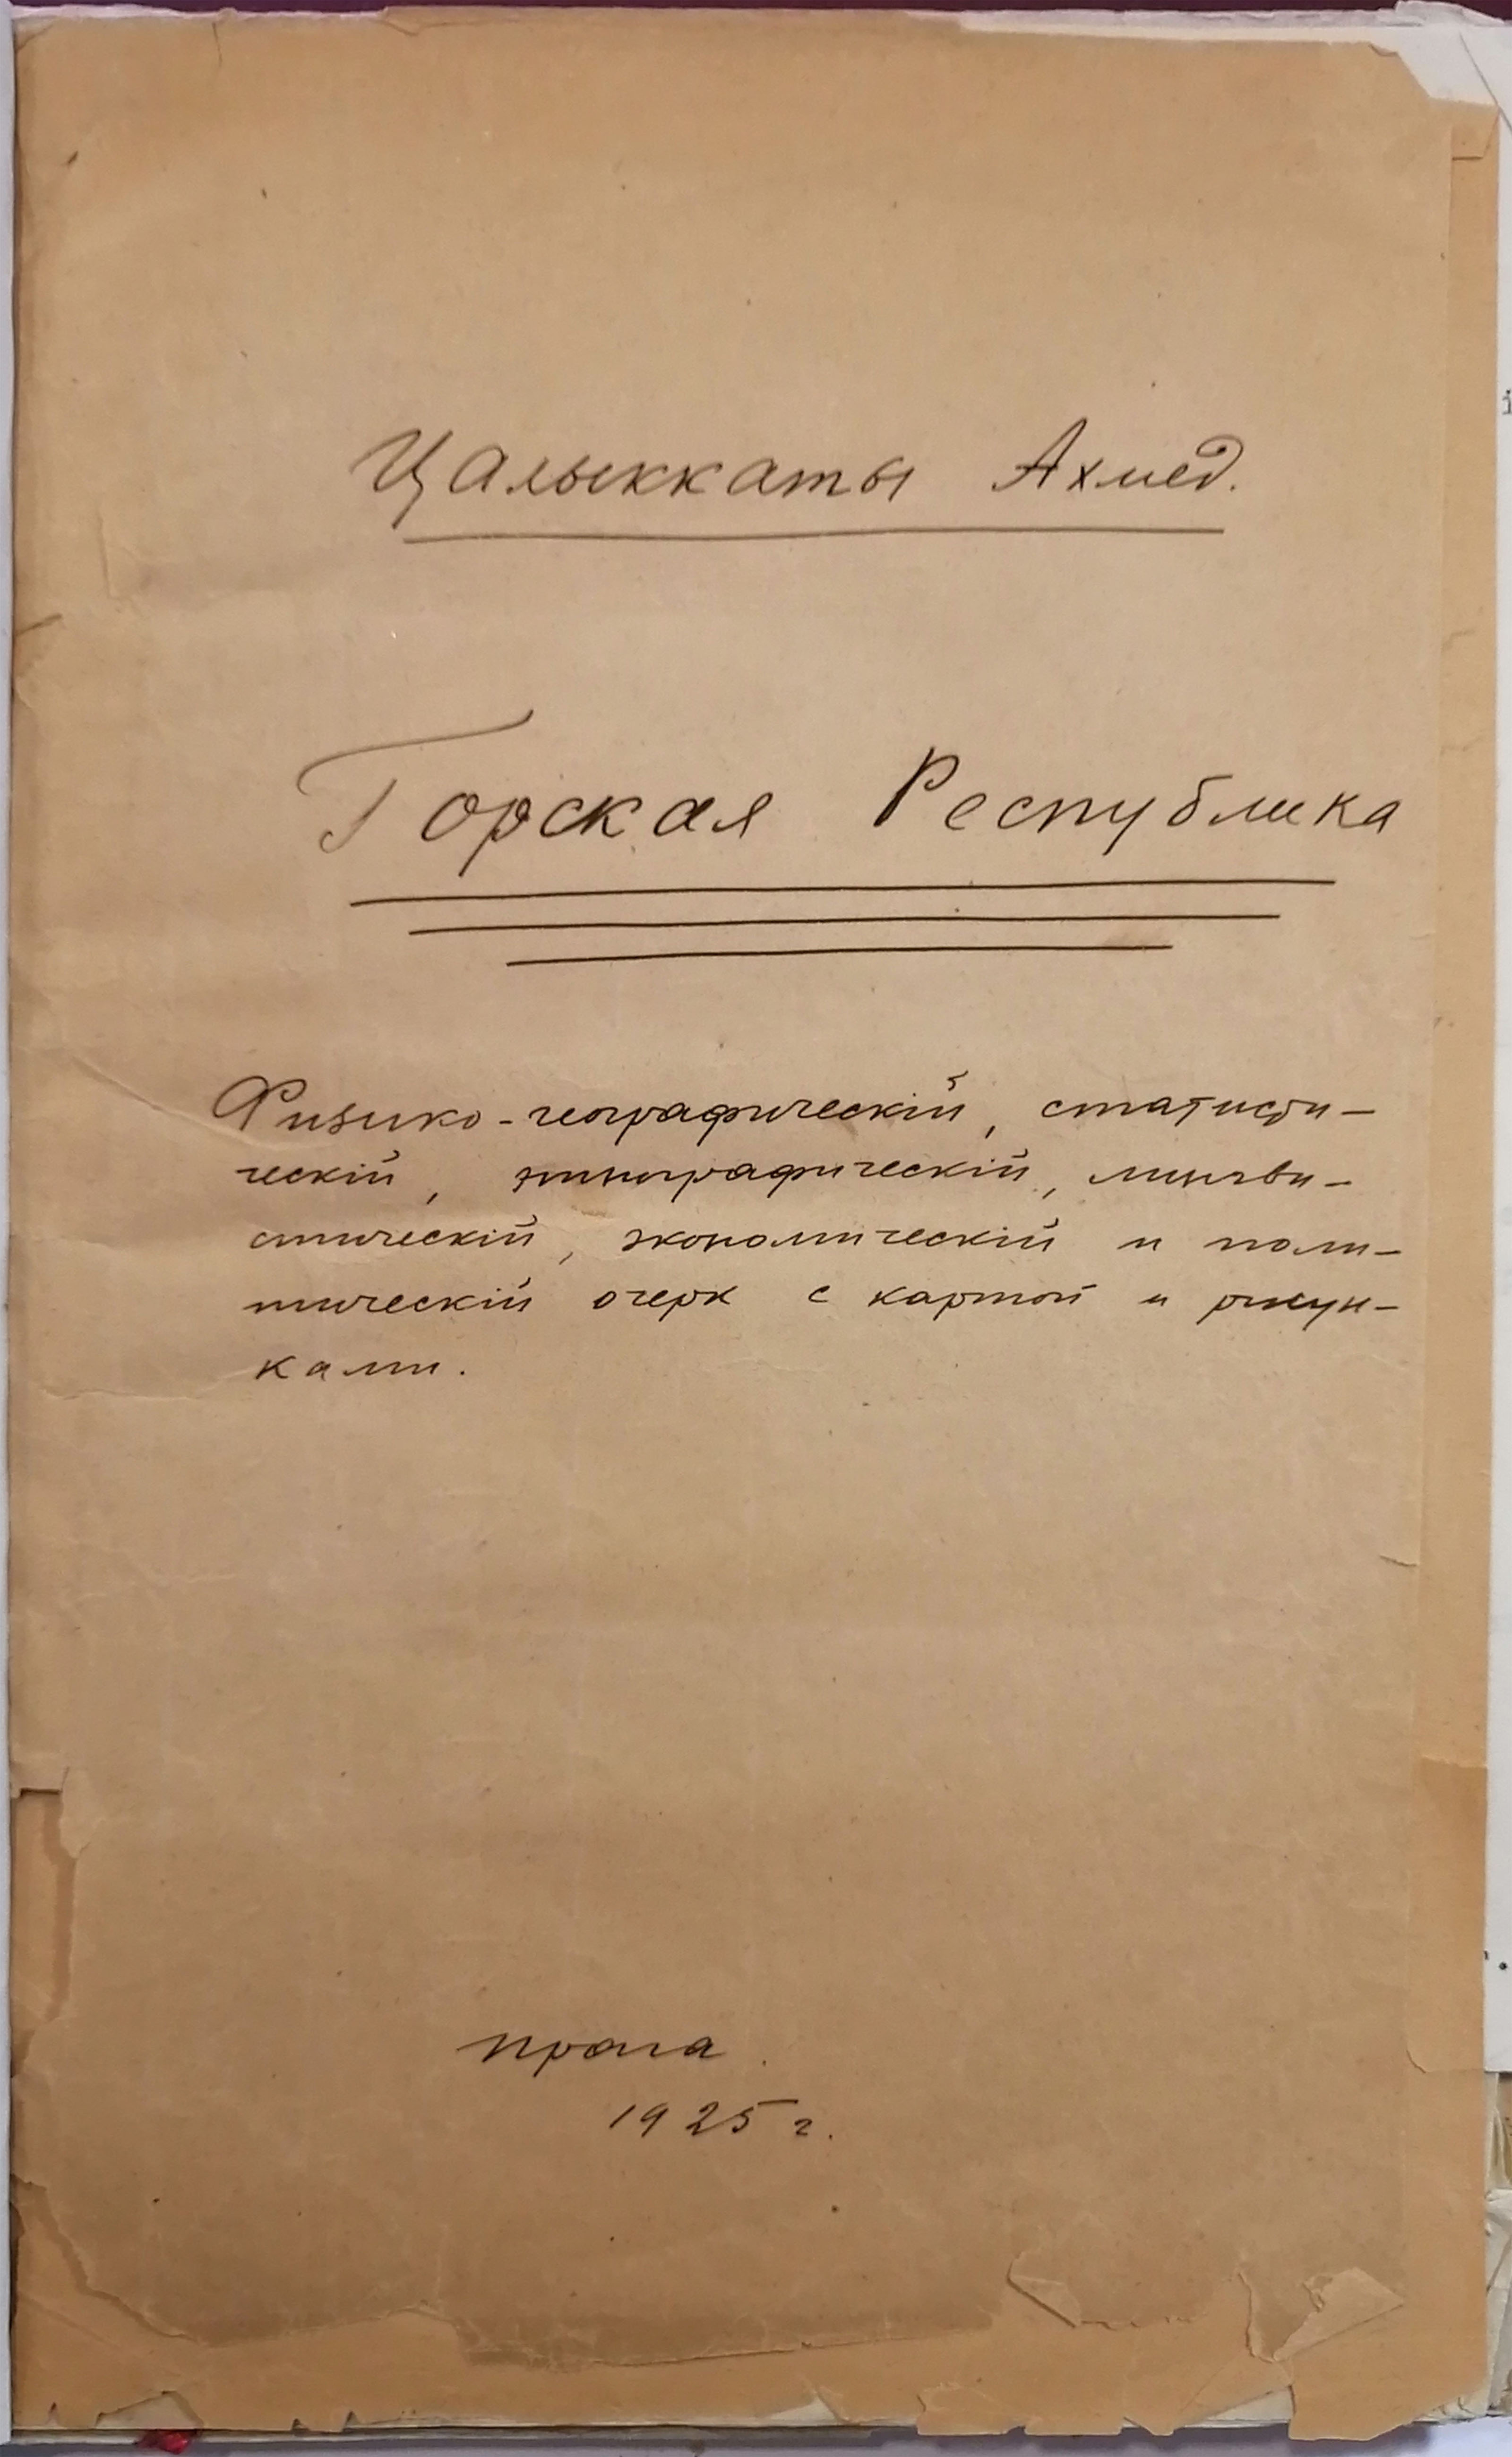 Цалыккаты Ахмед.
Горская Республика
Физико-географическій, статисти-
ческій, этнографическій, лингви-
стическій, экономическій и поли-
тическій очерк с картой и рисун-
ками.
Прага.
1925 г.